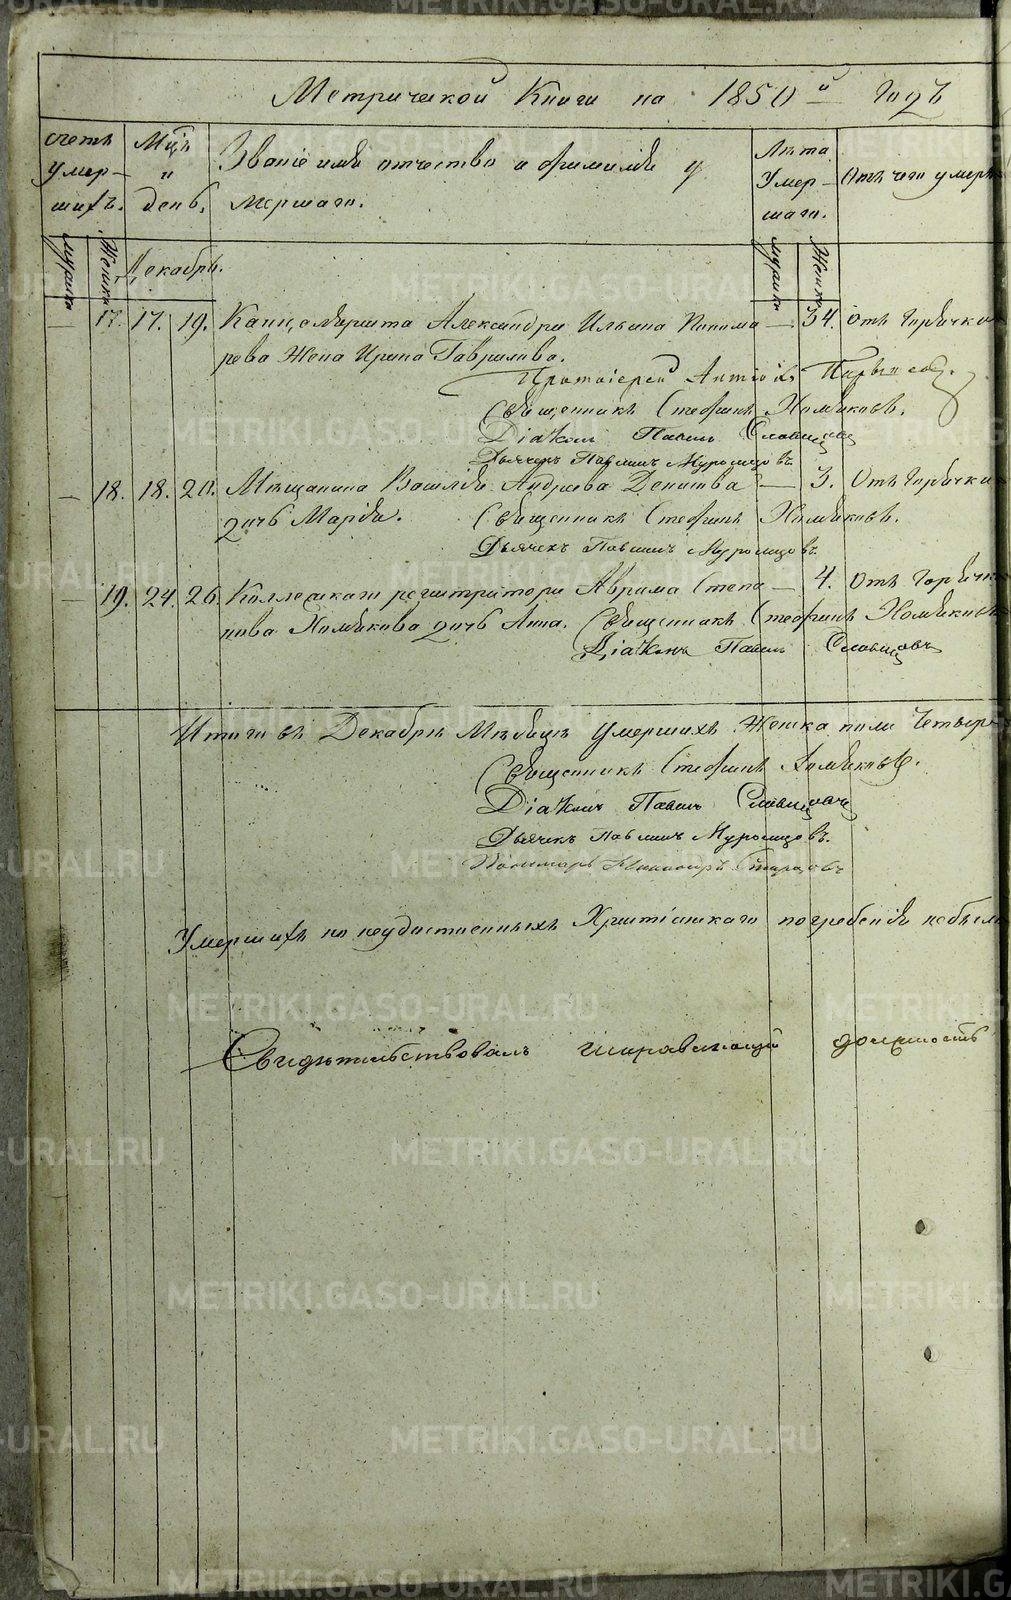 Метрической Книги на 1850й Годъ
Счетъ умер-шихъ.
Мцъ и день.
Званіе имя отчество и фамилія у
мершаго.
Лѣта Умер-шаго.
Отъ чего умеръ
мужска
Женска
Декабрь.
мужска
Женска
— 17. 17. 19. Канцеляриста Александра Ильина Понома — 34. Отъ Горячки
рева Жена Ирина Гаврилова.
Протоіерей
Священникъ Стефанъ Хомяковъ.
Діаконъ Павелъ Словцовъ
Дьячекъ Павлинъ Муромцовъ
— 18. 18. 20. Мѣщанина Василія Андреева Денисова — 3. Отъ Горячки
дочь Марія. Священникъ Стефанъ Хомяковъ.
Дьячекъ Павлинъ Муромцовъ
— 19. 24. 26. Коллежскаго регистратора Аврама Степа — 4. Отъ Горячки
нова Хомякова дочь Анна. Священникъ Стефанъ Хомяковъ
Діаконъ Павелъ Словцовъ
Итого въ Декабрѣ Мѣсяцѣ Умершихъ Женска пола Четыре
Священникъ Стефанъ Хомяковъ.
Діаконъ Павелъ Словцовъ
Дьячекъ Павлинъ Муромцовъ.
Пономарь
Умершихъ но неудостоенныхъ Христіанскаго погребенія небыло
Свидѣтельствовалъ исправляющій должность
METRIKI.GASO-URAL.RU